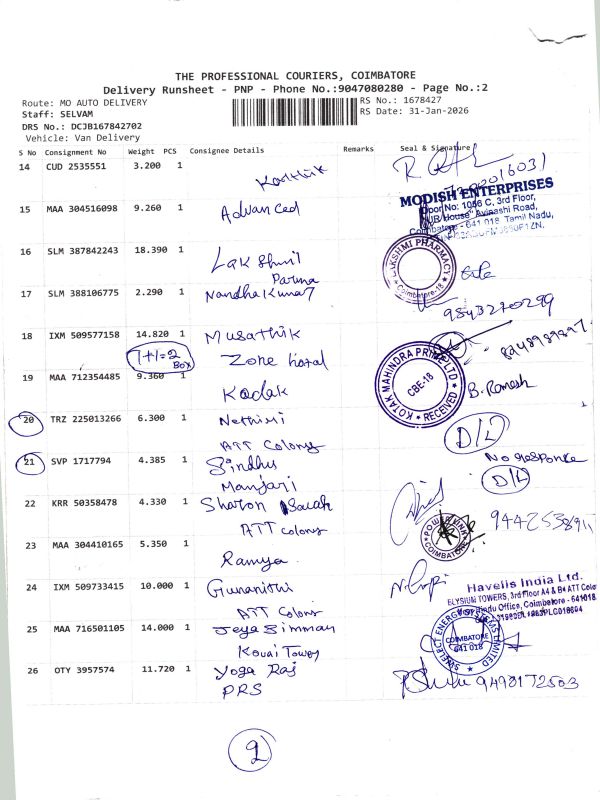 THE PROFESSIONAL COURIERS, COIMBATORE
Delivery Runsheet - PNP - Phone No.:9047080280 - Page No.:2
Route: MO AUTO DELIVERY
RS No.: 1678427
Staff: SELVAM
RS Date: 31-Jan-2026
DRS No.: DCJB167842702
Vehicle: Van Delivery
S No Consignment No Weight PCS Consignee Details Remarks Seal & Signature
14 CUD 2535551 3.200 1
Karthik
MODISH ENTERPRISES
Door No: 1056 C, 3rd Floor,
Avinashi Road,
Coimbatore - 641 018. Tamil Nadu,
15 MAA 304516098 9.260 1 Advanced
16 SLM 387842243 18.390 1 Lakshmi
Parma
LAKSHMI PHARMACY
Coimbatore-18
17 SLM 388106775 2.290 1 Nandha Kumar
9543270299
18 IXM 509577158 14.820 1 Musathik
1+1=2
Box
Zone hotal
19 MAA 712354485 9.360 1 Kodak
KOTAK MAHINDRA PRIME LTD
CBE-18
RECEIVED
B. Ramesh
20 TRZ 225013266 6.300 1 Nethini
ATT Colony
D/L
21 SVP 1717794 4.385 1 Sindhu
Manjari
No response
D/L
22 KRR 50358478 4.330 1 Sharon Sarah
ATT colony
COIMBATORE
23 MAA 304410165 5.350 1
Ramya
24 IXM 509733415 10.000 1 Gunanithi
ATT Colony
Havells India Ltd.
ELYSIUM TOWERS, 3rd Floor A4 & B4 ATT Colo
Hindu Office, Coimbatore - 641018.
25 MAA 716501105 14.000 1 Jeya Simman
Kovai Tower
SWELECT ENERGY SYSTEMS LIMITED
COIMBATORE
641 018
26 OTY 3957574 11.720 1 Yoga Raj
PRS
9498172503
2